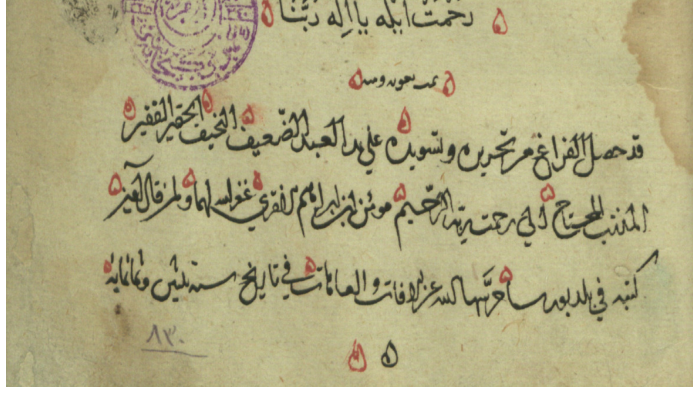 رحمت الله يا اله ربنا
قد حصل الفراغ من تحريره وتسويده علي يد العبد الضعيف النحيف الحقير الفقير
المذنب المحتاج الي رحمة ربه الرحيم مومن ابن ابراهيم غفر الله لهما ولمن قال آمين
كتبه في بلد بورسا حرسها الله عن الافات والعاهات في تاريخ سنه ثلثين وثمانمايه
٨٣٠